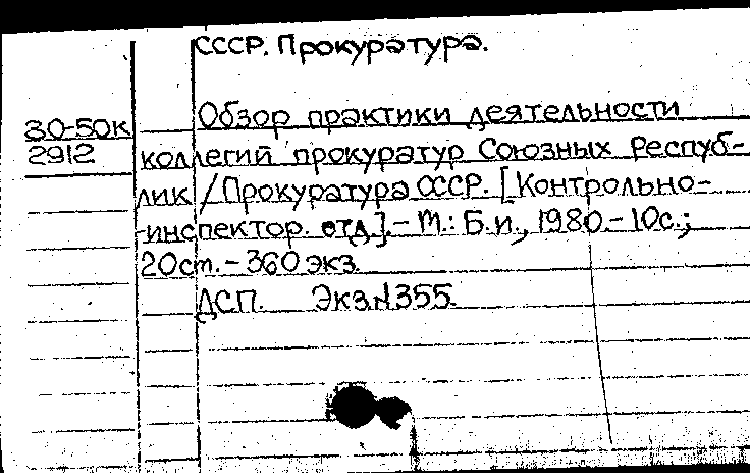 СССР. Прокуратура.
80-50К
2912
Обзор практики деятельности
коллегий прокуратур Союзных Респуб-
лик / Прокуратура СССР. [Контрольно-
-инспектор. отд.]. - М.: Б.и., 1980. - 10с.;
20см. - 360 экз.
ДСП. Экз.N355.